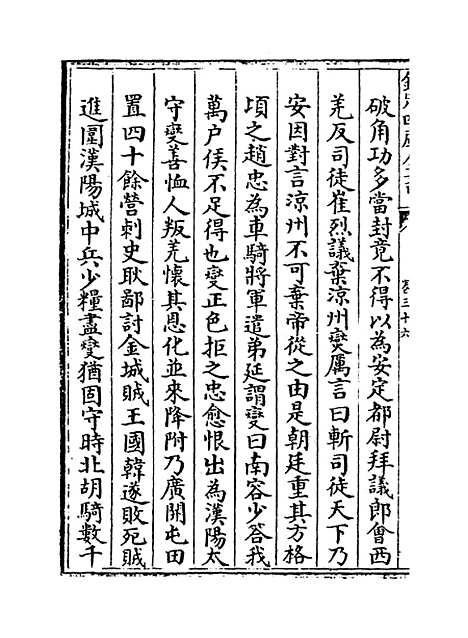 欽定四庫全書
卷三十六
破角功多當封竟不得以為安定都尉拜議郎會西
羌反司徒崔烈議棄涼州燮厲言曰斬司徒天下乃
安因對言涼州不可棄帝從之由是朝廷重其方格
頃之趙忠為車騎將軍遣弟延謂燮曰南容少答我
萬户侯不足得也燮正色拒之忠愈恨出為漢陽太
守燮善恤人叛羌懷其恩化並來降附乃廣開屯田
置四十餘營刺史耿鄙討金城賊王國韓遂敗死賊
進圍漢陽城中兵少糧盡燮猶固守時北胡騎數千